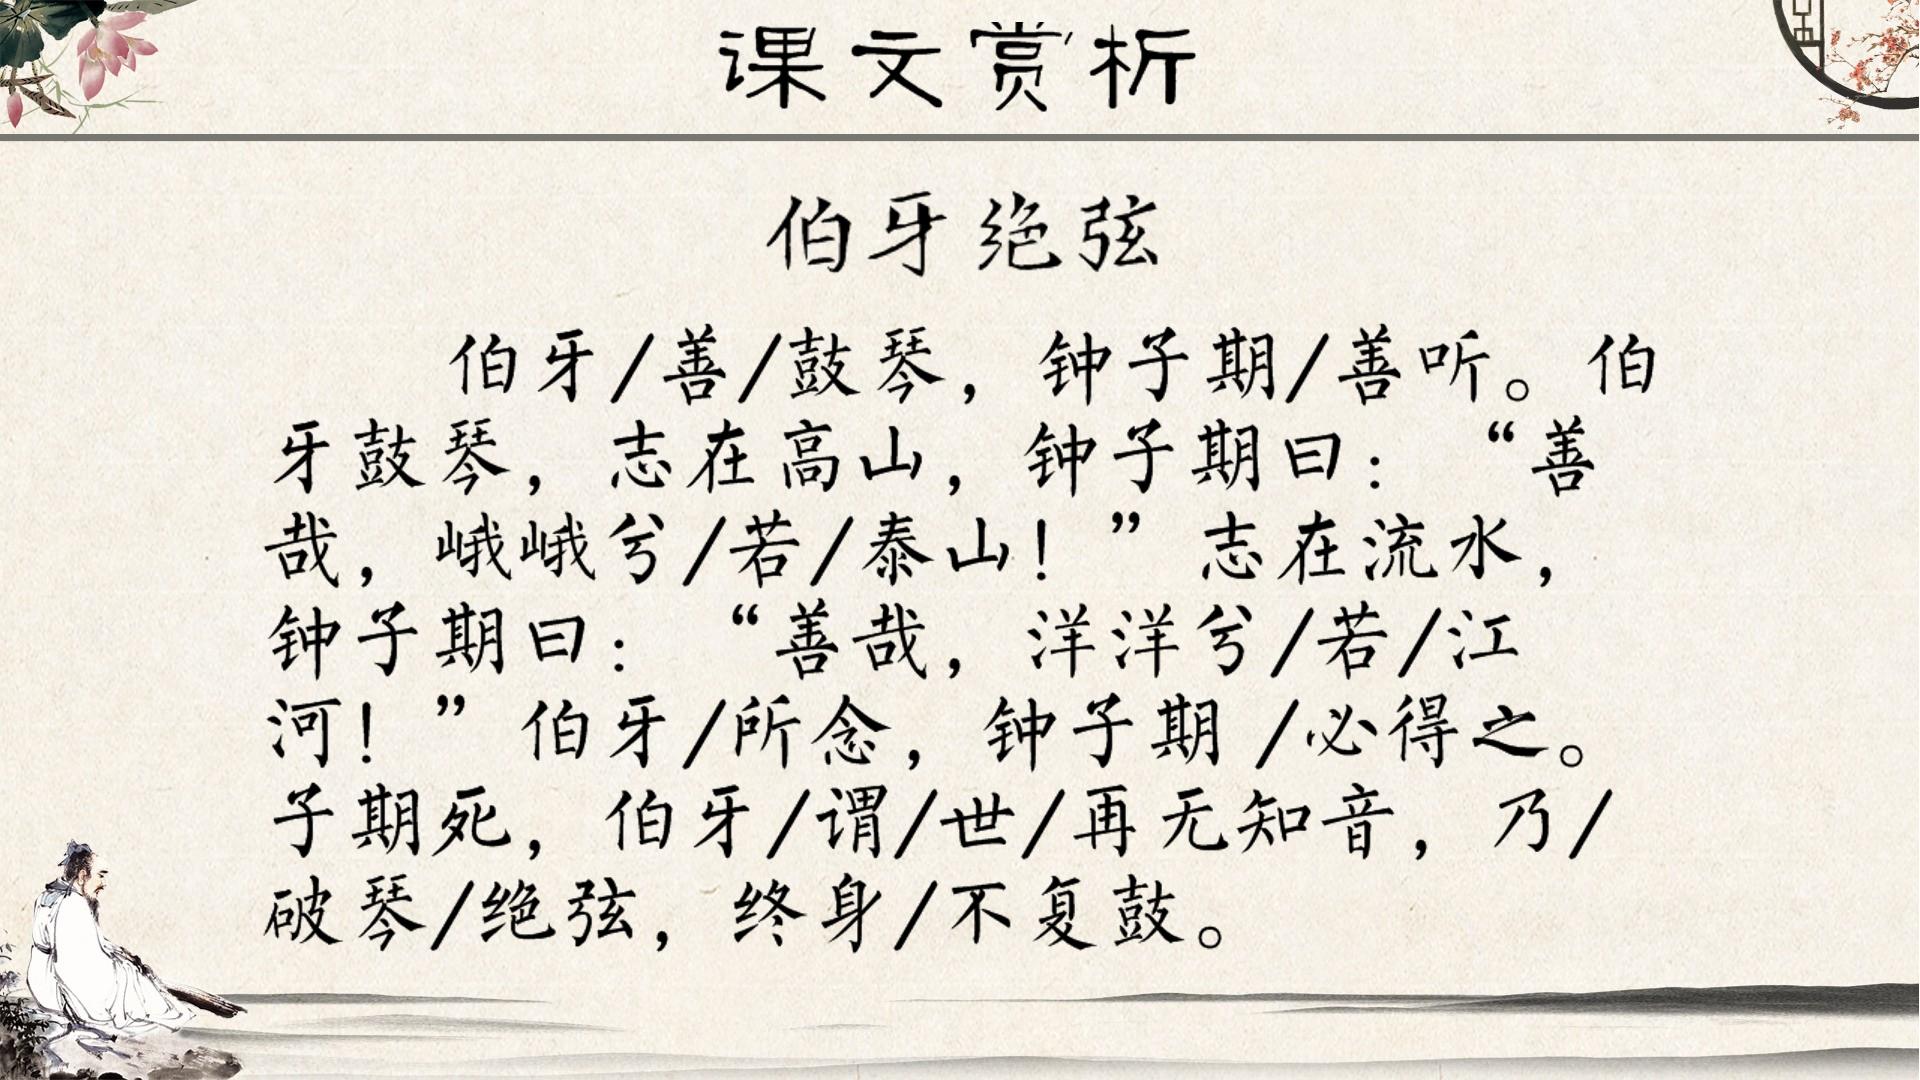 课文赏析
伯牙绝弦
伯牙/善/鼓琴，钟子期/善听。伯
牙鼓琴，志在高山，钟子期曰：“善
哉，峨峨兮/若/泰山！”志在流水，
钟子期曰：“善哉，洋洋兮/若/江
河！”伯牙/所念，钟子期 /必得之。
子期死，伯牙/谓/世/再无知音，乃/
破琴/绝弦，终身/不复鼓。